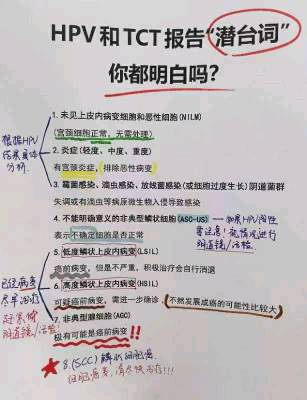 HPV和TCT报告“潜台词”
你都明白吗?
1. 未见上皮内病变细胞和恶性细胞(NILM)
(宫颈细胞正常,无需处理)
2. 炎症(轻度、中度、重度)
有宫颈炎症,排除恶性病变
3. 霉菌感染、滴虫感染、放线菌感染(或细胞过度生长)阴道菌群
失调或有滴虫等病原微生物入侵导致感染
4. 不能明确意义的非典型鳞状细胞(ASC-US)
表示不确定细胞是否正常
5. 低度鳞状上皮内病变(LSIL)
癌前病变,但是不严重,积极治疗会自行消退
6. 高度鳞状上皮内病变(HSIL)
可疑癌前病变,需进一步确诊,(不然发展成癌的可能性比较大)
7. 非典型腺细胞(AGC)
极有可能是癌前病变!!
8.(SCC)鳞状细胞癌
治疗!!!
根据HPV
结果具体
分析.
如果HPV阳性
需注意!
阴道镜/活检
已经病变
尽早治疗
赶紧做
阴道镜/活检!